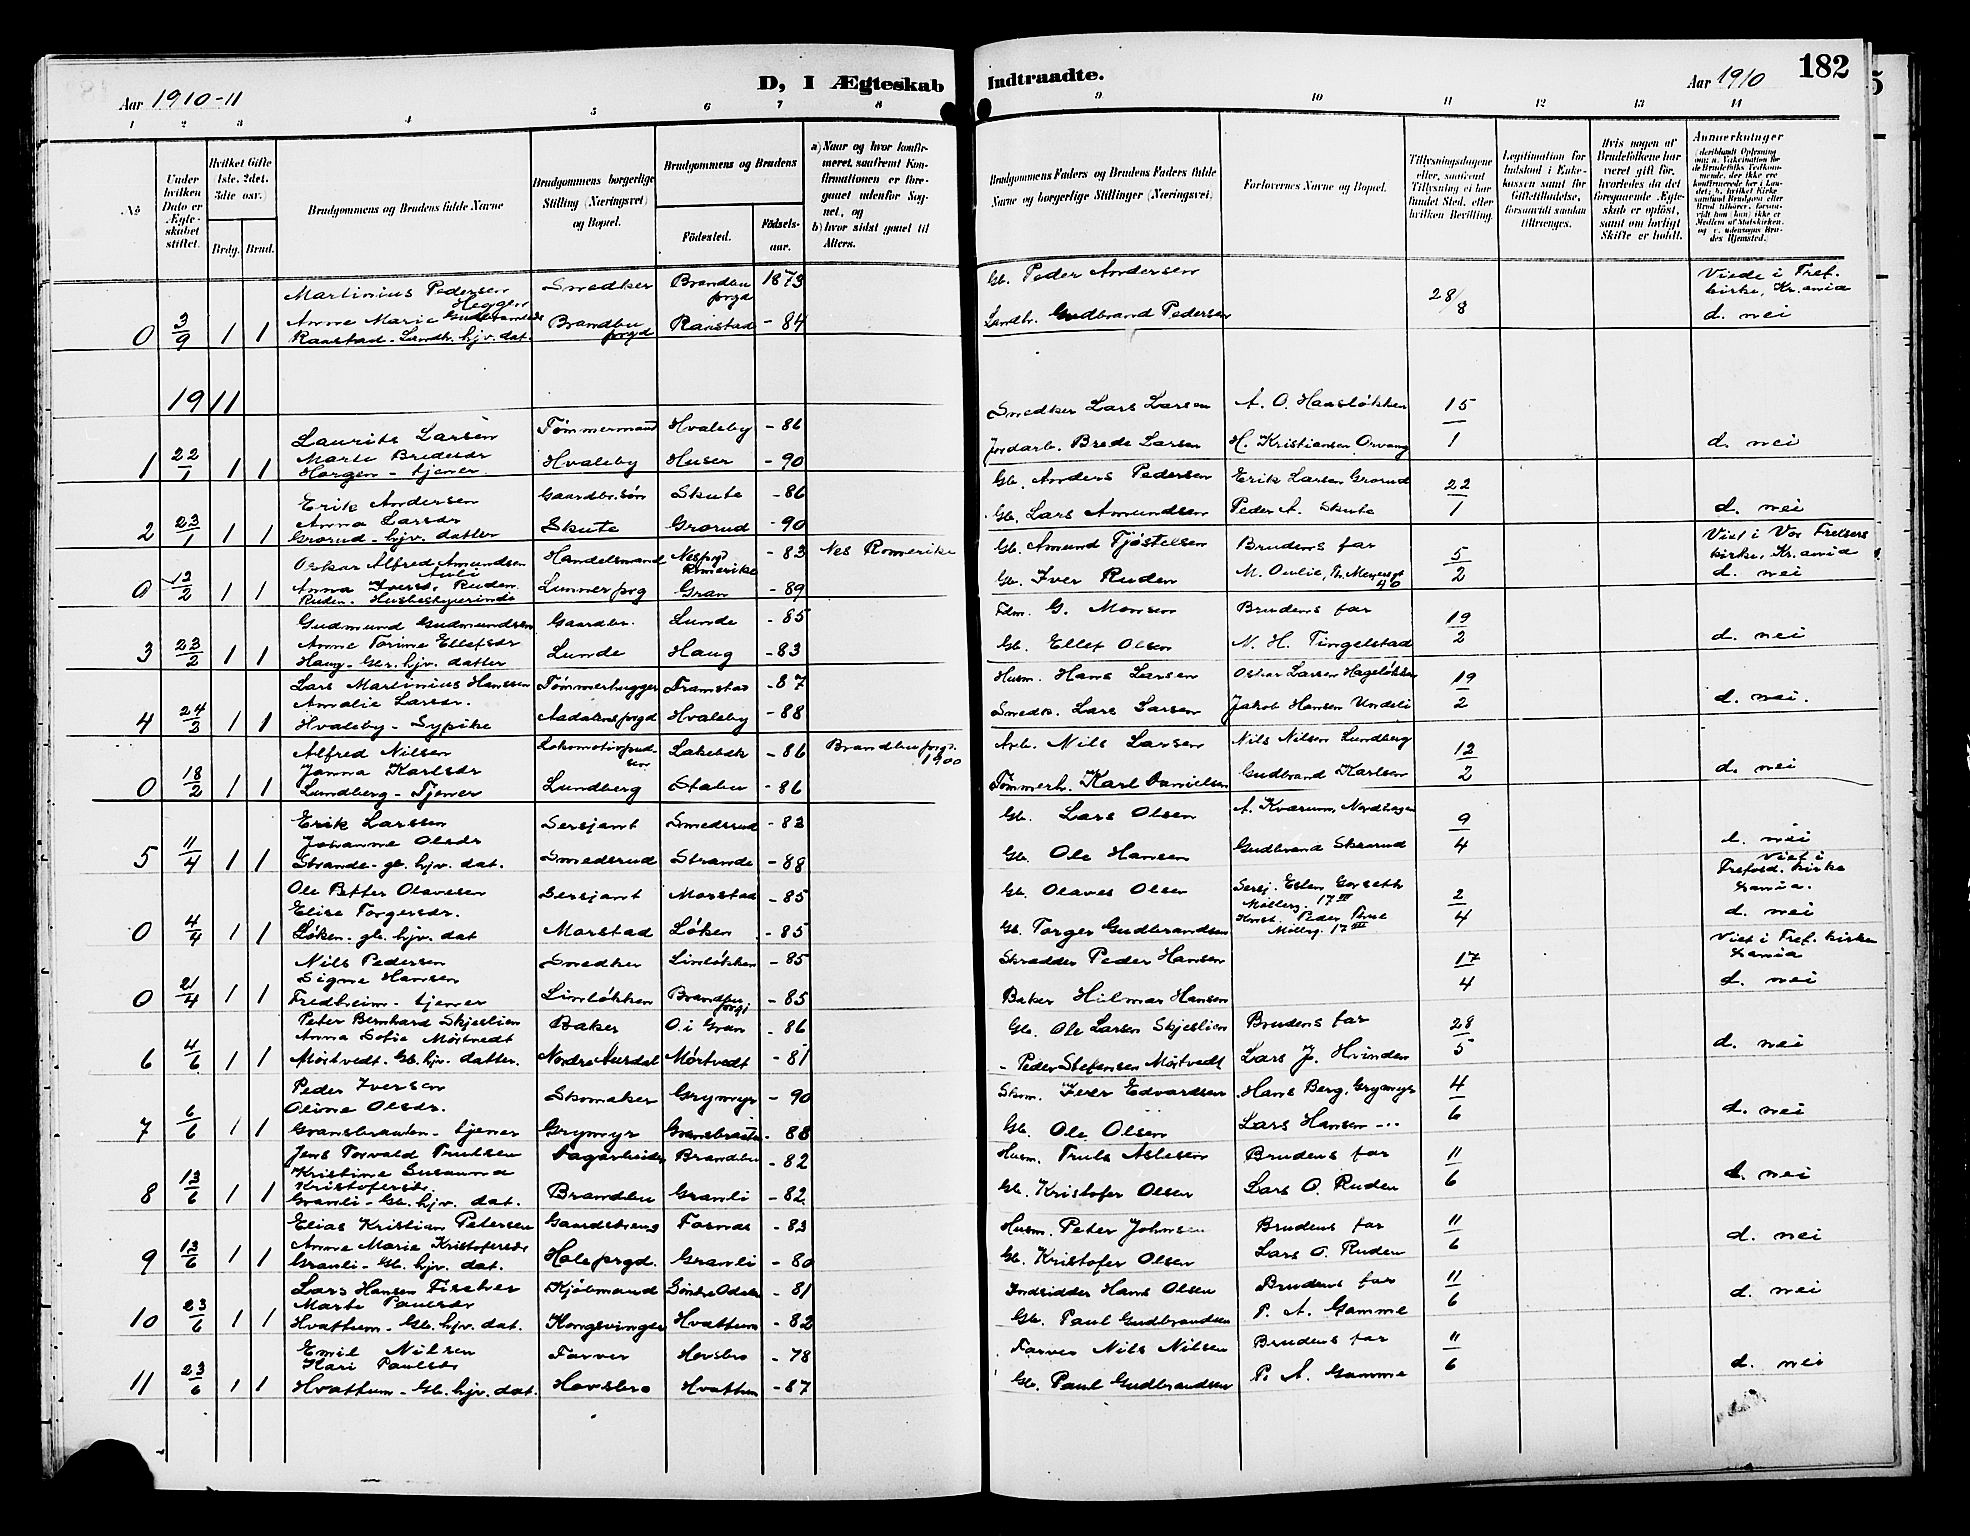 D, I Ægteskab Indtraadte.
182
Aar 1910-11
Aar 1910
1 2 3 4 5 6 7 8 9 10 11 12 13 14
No
Under hvilken Dato er Ægteskabet stiftet.
Hvilket Gifte 1ste. 2det. 3die osv.
Brdg. Brud.
Brudgommens og Brudens fulde Navne
Brudgommens borgerlige Stilling (Næringsvei) og Bopæl.
Brudgommens og Brudens
Födested.
Födselsaar.
a) Naar og hvor konfirmeret, saafremt Konfirmationen er foregaaet udenfor Sognet, og
b) hvor sidst gaaet til Alters.
Brudgommens Faders og Brudens Faders fulde Navne og borgerlige Stillinger (Næringsvei)
Forlovernes Navne og Bopæl.
Tillysningsdagene eller, saafremt Tillysning ei har fundet Sted, efter hvilken Bevilling.
Legitimation for Indskud i Enkekassen samt for Giftetilladelse, forsaavidt saadan tiltrænges.
Hvis nogen af Brudefolkene har været gift för, hvorledes da det foregaaende Ægteskab er oplöst, samt om lovligt Skifte er holdt.
Anmerkninger
0 3/9 1 1
Martinius Pedersen Heggen
Anne Marie Gudbrandsdr
Raastad - Landh. hjv. dat.
Snedker Brandbu prgd 1873
Brandbu prgd Raastad - 84
Gb. Peder Andersen
Landh. Gudbrand Pedersen
28/8
Viede i Tref. kirke, Kr.ania
d. nei
1911
1 22/1 1 1
Laurits Larsen
Marte Bredesdr
Horgen - tjener
Tømmermand Hvaleby - 86
Hvaleby Huser - 90
Snedker Lars Larsen A. O. Haasløkken
Jordarb. Brede Larsen H. Kristiansen Orvang
15/1
d. nei
2 23/1 1 1
Erik Andersen
Anna Larsdr
Grorud - hjv. datter
Gaardbr. søn Skute - 86
Skute Grorud - 90
Gb. Anders Pedersen Erik Larsen Grorud
Gb. Lars Amundsen Peder A. Skute
22/1
d. nei
0 12/2 1 1
Oskar Alfred Amundsen Auli
Anna Iversd. Ruden
Ruden. Husbestyrerinde
Handelsmand Nes prgd Romerike - 83 Nes Romerike
Lunner prg Gran - 89
Gb. Amund Tjøstelsen Brudens far
Gb. Iver Ruden M. Oulie, Th. Meyersgt 40
5/2
Viet i Vor Frelsers kirke, Kr.ania
d. nei
3 23/2 1 1
Gudmund Gudmundsen
Anne Torine Ellefsdr
Haug - Gbr. hjv. datter
Gaardbr. Lunde - 85
Lunde Haug - 83
Fdm. G. Monsen Brudens far
Gb. Ellef Olsen N. H. Tingelstad
19/2
d. nei
4 24/2 1 1
Lars Martinius Hanssen
Amalie Larsdr.
Hvaleby - Sypike
Tømmerhugger Framstad - 87
Aadalens prgd Hvaleby - 88
Husm. Hans Larsen Oskar Larsen Hageløkken
Snedk. Lars Larsen Jakob Hansen Undeli
19/2
d. nei.
0 18/2 1 1
Alfred Nilsen
Janna Karlsdr
Lundberg - Tjener
Lokomotivpudser - 86 Brandbu prgd. 1900
Lundberg Stabu - 86
Arb. Nils Larsen Nils Nilsen Lundberg
Tømmerh. Karl Danielsen Gudbrand Karlsen
12/2
d. nei
5 11/4 1 1
Erik Larssen
Johanne Olsdr
Strande - gb. hjv. dat.
Sersjant Smedsrud - 83
Smedsrud Strande - 88
Gb. Lars Olsen A. Kværum, Nordhagen
Gb. Ole Hansen Gudbrand Skarud
9/4
d. nei
0 4/4 1 1
Ole Petter Olavesen
Elise Torgersdr.
Løken - gb. hjv. dat
Sersjant Morstad - 85
Morstad Løken - 85
Gb. Olaves Olsen Sersj. Esten Gorseth Møllerg. 17 III
Gb. Torger Gudbrandsen Peder Møllrg. 17 III
2/4
Viet i Trefold. kirke
d. nei
0 21/4 1 1
Nils Pedersen
Signe Hansen
Fredheim - tjener
Snedker Linløkken - 85
Linløkken Brandbu prgj - 85
Skrædder Peder Hansen
Baker Hilmar Hansen
17/4
Viet i Tref. kirke
d. nei
6 4/6 1 1
Peter Bernhard Skjeslien
Anna Sofie Mørtvedt
Mørtvedt. Gb. hjv. datter.
Baker O. i Gran - 86
Nordre Aurdal Mørtvedt - 81
Gb. Ole Larsen Skjeslien Brudens far
- Peder Stefensen Mørtvedt Lars J. Hvinden
28/5
d. nei
7 6/6 1 1
Peder Iversen
Oline Olsdr.
Gransbraaten - tjener
Skomaker Grymyr - 90
Grymyr Gransbraaten - 88
Skom. Iver Edvardsen Hans Berg, Grymyr
Gb. Ole Olsen Lars Hansen - - -
4/6
d. nei
8 12/6 1 1
Jens Torvald Trulssen
Kristine Susanna Kristofersdr
Granli - Gb. hjv. dat.
Fagarbeider Brandbu - 82
Brandbu Granli - 82
Husm. Truls Aslesen Brudens far
Gb. Kristofer Olsen Lars O. Ruden
11/6
d. nei
9 12/6 1 1
Elias Kristian Petersen
Anne Marie Kristofersdr
Granli - Gb. hjv. dat.
Gaardsdreng - 83
Hole prgd. Granli - 80
Husm. Peter Johnsen Brudens far
Gb. Kristofer Olsen Lars O. Ruden
11/6
d. nei
10 23/6 1 1
Lars Hansen Fischer
Marte Paulsdr
Hvattum - Gb. hjv. dat.
Kjøbmand Søndre Odalen - 81
Kongsvinger Hvattum - 82
Indsidder Hans Olsen Brudens far
Gb. Paul Gudbrandsen P. A. Gamme
11/6
d. nei
11 23/6 1 1
Emil Nilsen
Kari Paulsdr
Hvattum - Gb. hjv. dat.
Farver Hovsbro - 78
Hovsbro Hvattum - 87
Farver Nils Nilsen Brudens far
Gb. Paul Gudbrandsen P. A. Gamme
11/6
d. nei